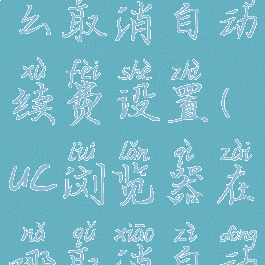 么取消自动
xù fèi shè zhì
续费设置(
liú lǎn qì zài
UC浏览器在
nǎ qǔ xiāo zì dòng
哪取消自动